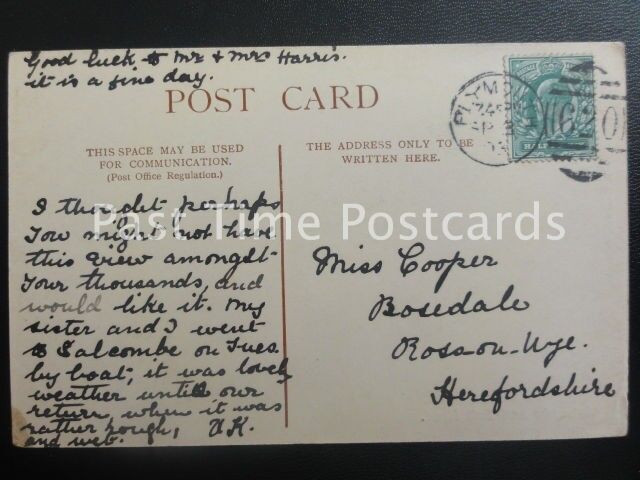 Good luck to Mr & Mrs Harris.
it is a fine day.
POST CARD
THIS SPACE MAY BE USED
FOR COMMUNICATION.
(Post Office Regulation.)
THE ADDRESS ONLY TO BE
WRITTEN HERE.
PLYM
620
HAL
Past Time Postcards
I thought perhaps
You might not have
this view amongst
Your thousands, and
would like it. My
sister and I went
to Salcombe on Tues.
by boat, it was lovely
weather until our
return, when it was
rather rough,
and wet.
Miss Cooper
Bosedale
Ross-on-Wye.
Herefordshire